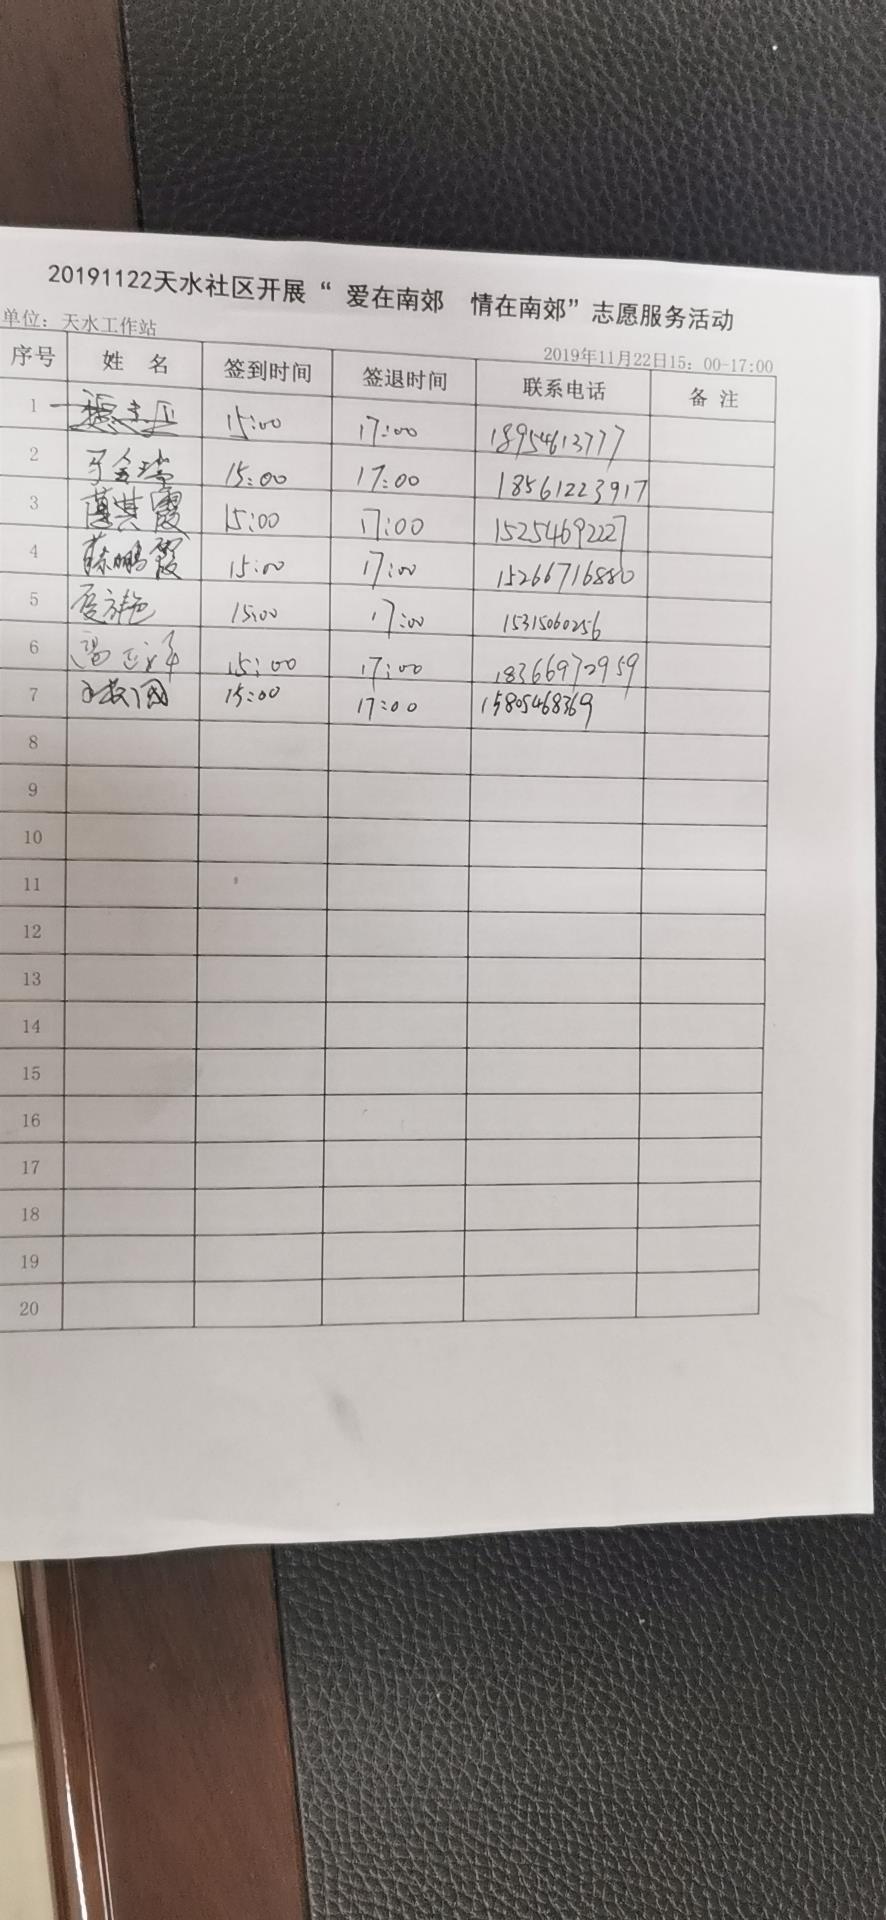 20191122天水社区开展“ 爱在南郊 情在南郊”志愿服务活动
单位: 天水工作站
2019年11月22日15: 00-17:00
序号 姓 名 签到时间 签退时间 联系电话 备 注
1 15:00 17:00 18954613777
2 15:00 17:00 18561223917
3 薄其霞 15:00 17:00 15254692227
4 薛鹏霞 15:00 17:00 15266716880
5 15:00 17:00 15315060256
6 15:00 17:00 18366972959
7 15:00 17:00 15805468369
8
9
10
11
12
13
14
15
16
17
18
19
20